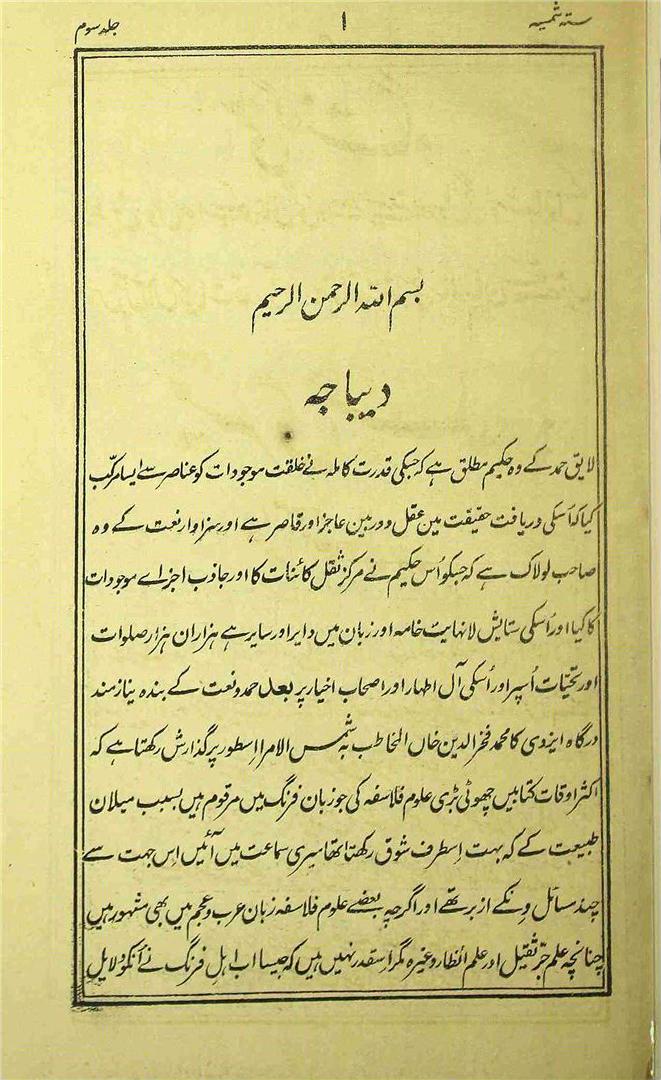 ستہ شمسیہ
۱
جلد سوم
بسم اللہ الرحمن الرحیم
دیباجہ
لایق حمد کے وہ حکیم مطلق ہے کہ جسکی قدرت کاملہ نے خلقت موجودات کو عناصر سے ایسا مرکب
کیا کہ اُسکی دریافت حقیقت مین عقل دوربین عاجز اور قاصر ہے اور سزاوار نعت کے وہ
صاحب لولاک ہے کہ جسکو اُس حکیم نے مرکز ثقل کائنات کا اور جاذب اجزاے موجودات
کا کیا اور اُسکی ستایش لانہایت خامہ اور زبان میں دایر اور سایر ہے ہزاران ہزار صلوات
اور تحیّات اُسپر اور اُسکی آل اطہار اور اصحاب اخیار پر بعد حمد و نعت کے بندہ نیازمند
درگاہ ایزدی کا محمد فخر الدین خاں المخاطب بہ شمس الامرا اسطور پر گذارش رکھتا ہے کہ
اکثر اوقات کتابیں چھوٹی بڑی علوم فلاسفہ کی جو زبان فرنگ میں مرقوم ہیں بسبب میلان
طبیعت کے کہ بہت اِسطرف شوق رکھتا تھا میری سماعت میں آئیں اِس جہت سے
چند مسائل وِنکے ازبر تھے اور اگرچہ بعضے علوم فلاسفہ زبان عرب و عجم میں بھی مشہور ہیں
چنانچہ علم جرّ ثقیل اور علم انظار وغیرہ مگر اِسقدر نہیں ہیں کہ جیسا اب اہلِ فرنگ نے اُنکو دلایل